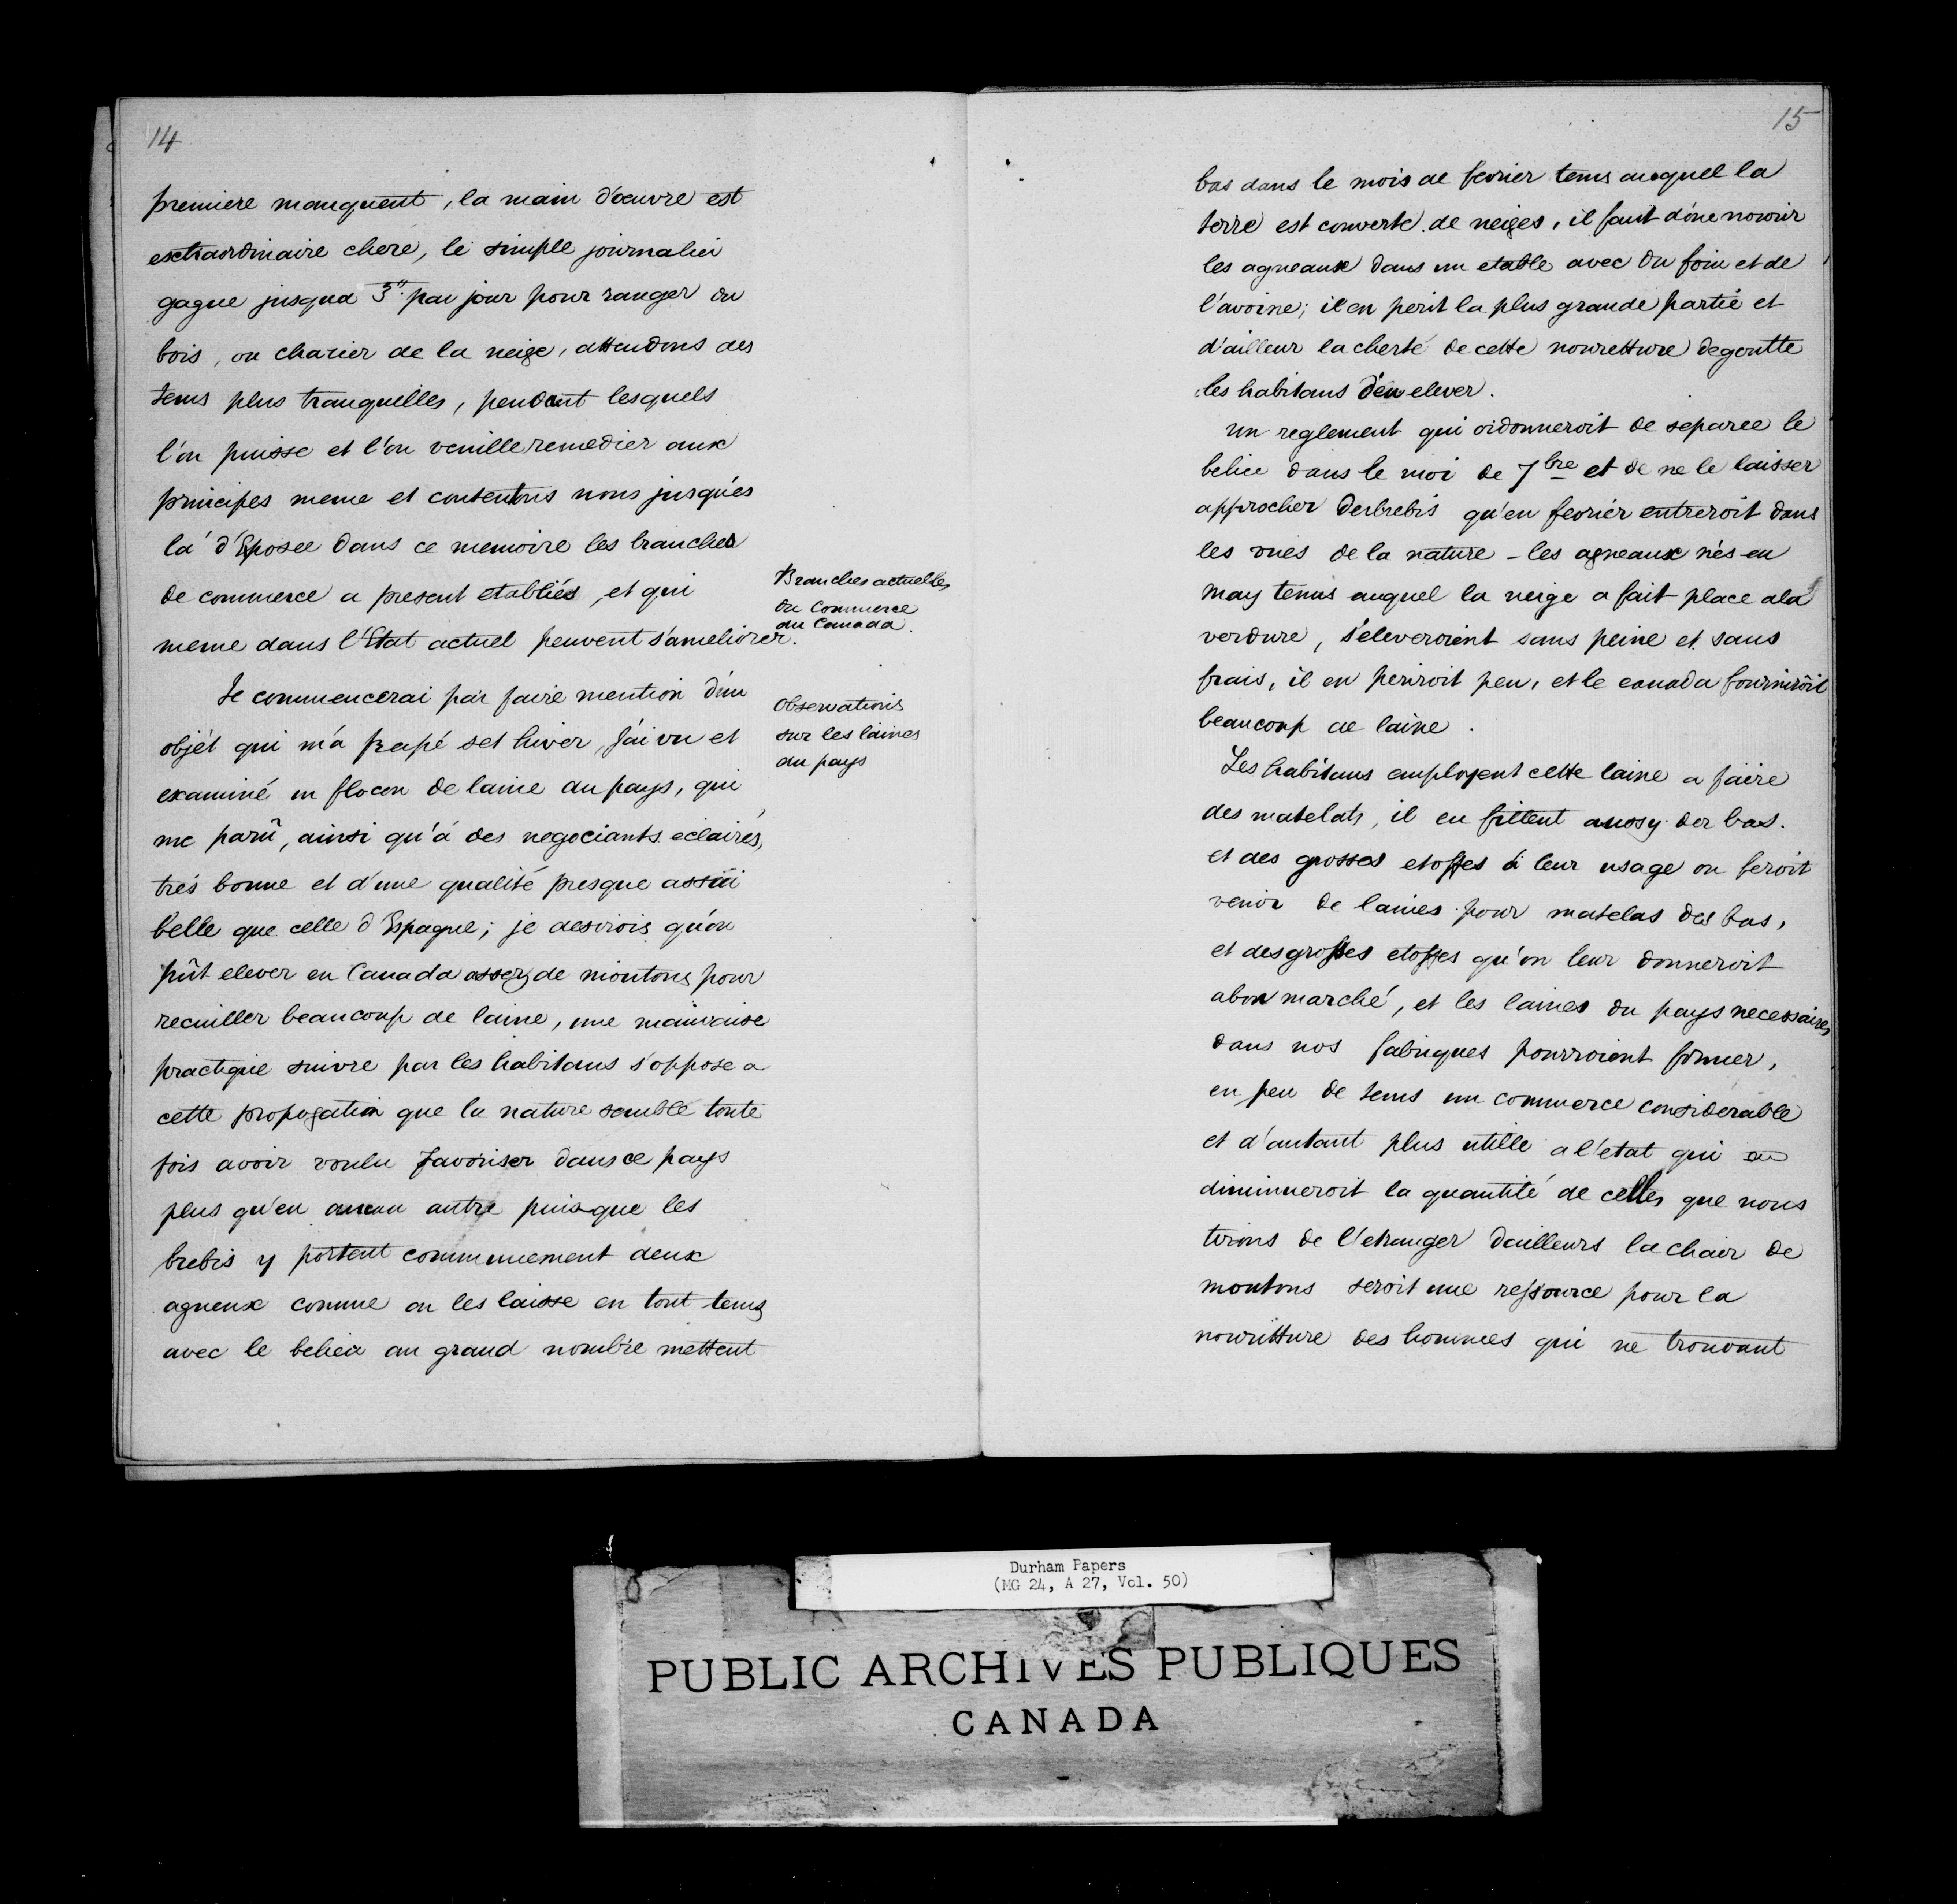 14
premiere manquent, la main d'œuvre est
exctraordinaire chere, le simple journalier
gagne jusqua 3" par jour pour ranger du
bois, ou charier de la neige, attendons des
tems plus tranquilles, pendant lesquels
l'on puisse et l'on veuille remedier aux
principes meme et contentons nous jusqu'es
la d'Eposee dans ce memoire les branches
de commerce a present etabliés, et qui
meme dans l'Etat actuel peuvent s'ameliorer.
Branches actuelles
du Commerce
du Canada.
Je commencerai par faire mention d'un
objét qui m'a frapé set hiver, j'ai vu et
examiné un flocon de laine du pays, qui
me parû, ainsi qu'á des negociants eclairés,
trés bonne et d'une qualité presque assüi
belle que celle d'Espagne; je desirois qu'on
pût elever en Canada assez de moutons pour
recuiller beaucoup de laine, une mauvaise
practique suivre par les habitans s'oppose a
cette propogation que la nature semble toute
fois avoir voulu favoriser dans ce pays
plus qu'en aucun autre puisque les
brebis y portent communement deux
agneux comme on les laisse en tout tems
avec le belier au grand nombre mettent
Observations
sur les laines
du pays
15
bas dans le mois de fevrier tems auquel la
terre est converte de neiges, il faut donc nourir
les agneaux dans un etable avec du foin et de
l'avoine; il en perit la plus grande partie et
d'ailleur la cherté de cette nouretture degoutte
les habitans d'en elever.
un reglement qui ordonneroit de separee le
belier dans le moi de 7bre et de ne le laisser
approcher des brebis qu'en fevrier entreroit dans
les vues de la nature - les agneaux nés en
may tems auquel la neige a fait place ala
verdure, s'eleveroient sans peine et sans
frais, il en periroit peu, et le canada fourniroit
beaucoup de laine.
Les habitans employent cette laine a faire
des matelats, il en filtent aussy des bas.
et des grosses etoffes à leur usage on feroit
venir de laines pour matelas des bas,
et des grosses etoffes qu'on leur donneroit
abon marché, et les laines du pays necessaires
dans nos fabriques pourroient former,
en peu de tems un commerce considerable
et d'autant plus utille a l'etat qui en
diminueroit la quantité de celles que nous
tirons de l'etranger dailleurs la chair de
moutons seroit une ressource pour la
nouritture des hommes qui ne trouvant
Durham Papers
(MG 24, A 27, Vol. 50)
PUBLIC ARCHIVES PUBLIQUES
CANADA